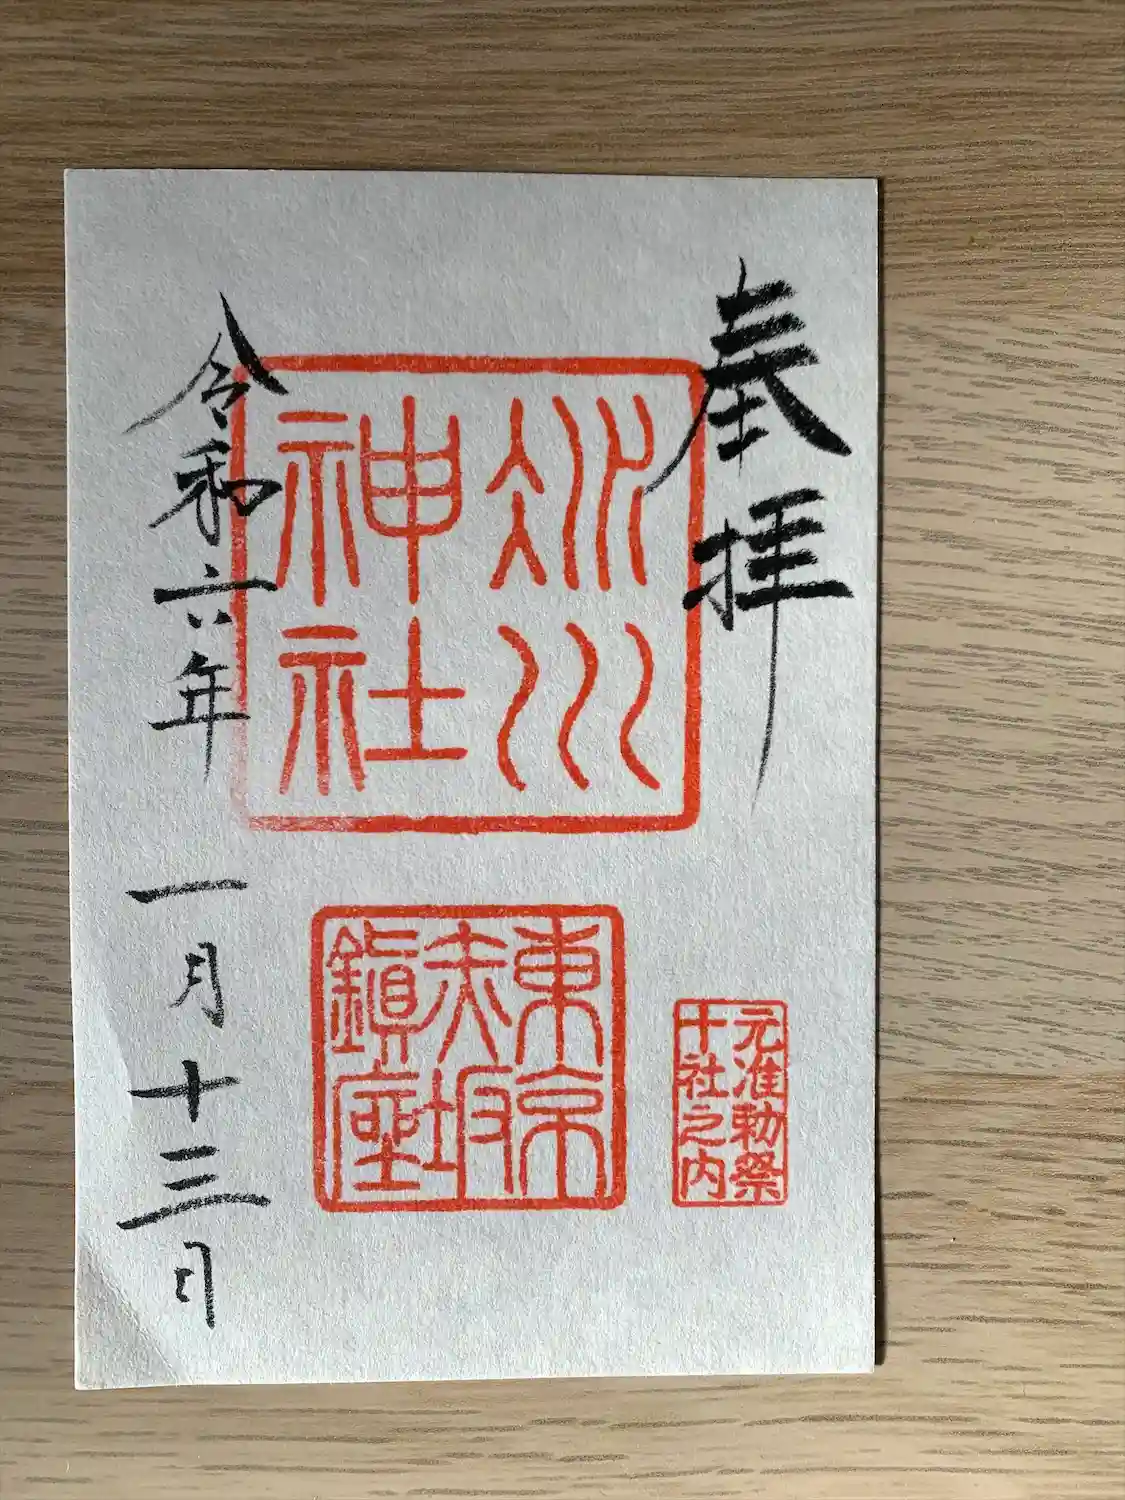 奉拝
氷川
神社
元准勅祭
十社之内
東京
赤坂
鎮座
令和六年 一月十三日